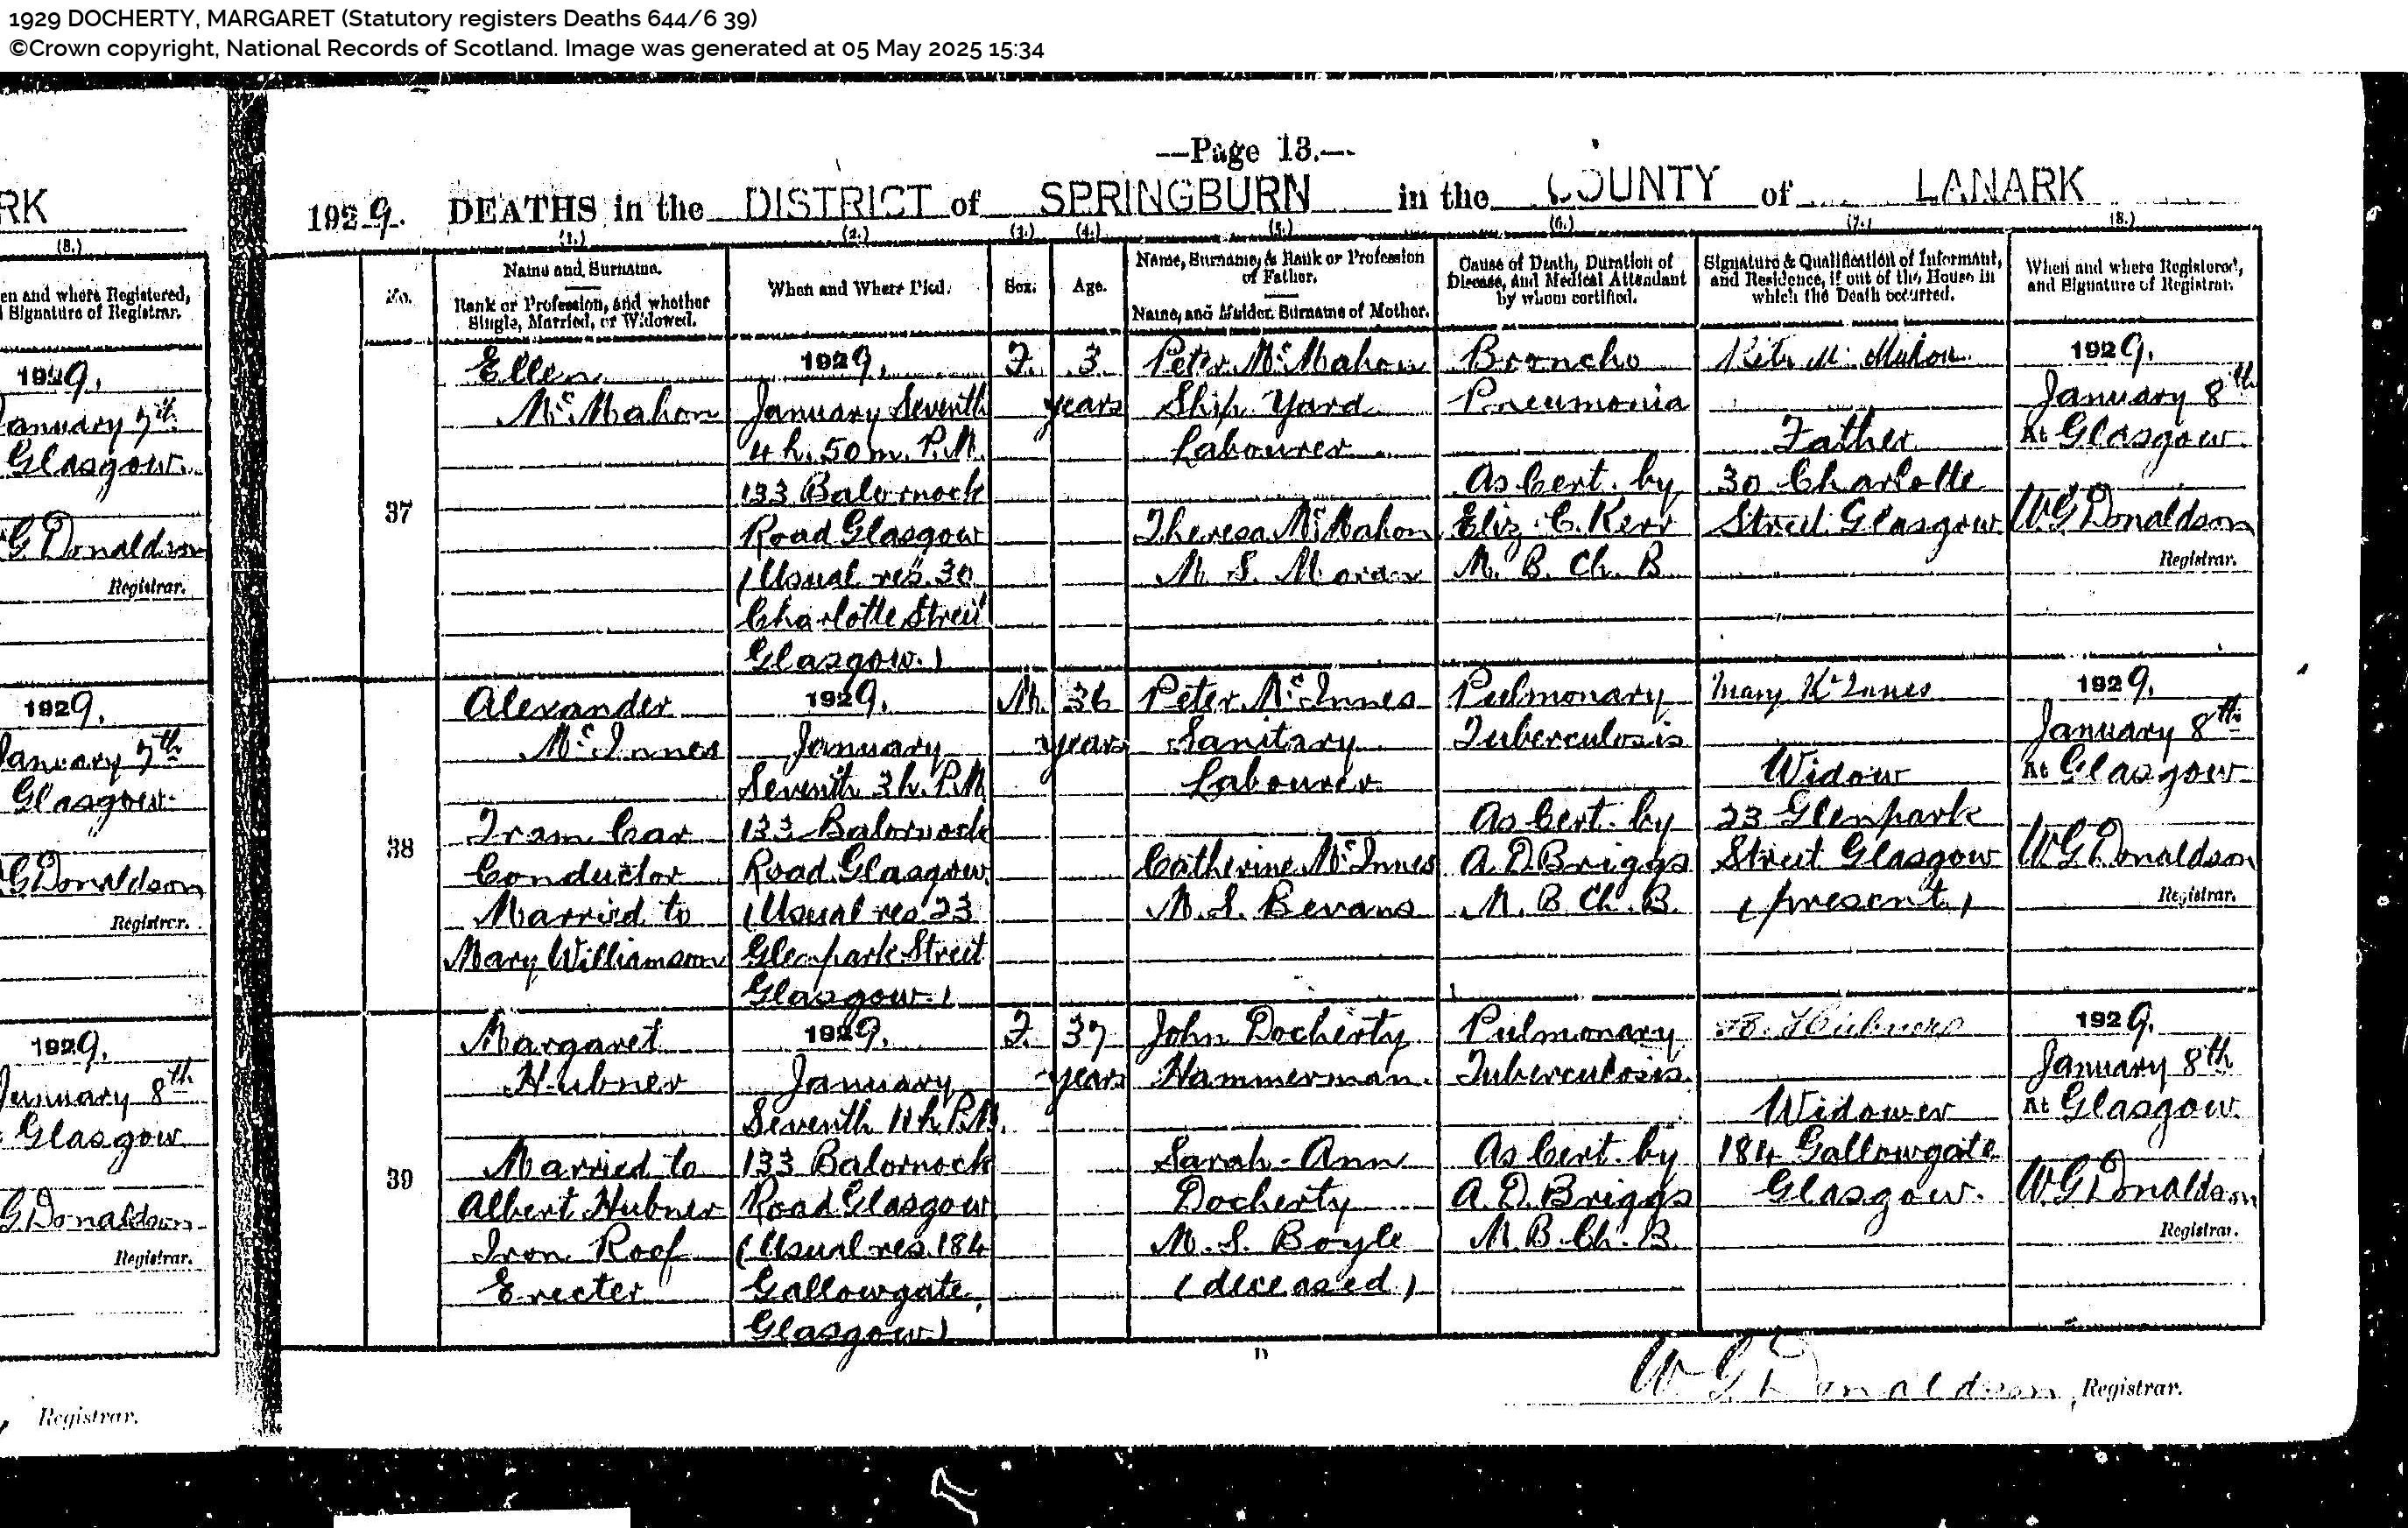 1929 DOCHERTY, MARGARET (Statutory registers Deaths 644/6 39)
©Crown copyright, National Records of Scotland. Image was generated at 05 May 2025 15:34
—Page 13.—
1929. DEATHS in the DISTRICT of SPRINGBURN in the COUNTY of LANARK
(1.) (2.) (3.) (4.) (5.) (6.) (7.) (8.)
No.
Name and Surname.
Rank or Profession, and whether
Single, Married, or Widowed.
When and Where Died.
Sex.
Age.
Name, Surname, & Rank or Profession
of Father.
Name, and Maiden Surname of Mother.
Cause of Death, Duration of
Disease, and Medical Attendant
by whom certified.
Signature & Qualification of Informant,
and Residence, if out of the House in
which the Death occurred.
When and where Registered,
and Signature of Registrar.
37
Ellen
McMahon
1929.
January Seventh
4 h. 50 m. P.M.
133 Balornock
Road Glasgow
(Usual res. 30
Charlotte Street
Glasgow.)
F.
3
years
Peter McMahon
Ship Yard
Labourer
Theresa McMahon
M. S. Moran
Broncho
Pneumonia
As Cert. by
Eliz. C. Kerr
M. B. Ch. B.
Peter McMahon
Father
30 Charlotte
Street Glasgow
1929.
January 8th
At Glasgow
W G Donaldson
Registrar.
38
Alexander
McInnes
Tram Car
Conductor
Married to
Mary Williamson
1929.
January
Seventh 3 h. P.M.
133 Balornock
Road Glasgow
(Usual res 23
Glenpark Street
Glasgow.)
M.
36
years
Peter McInnes
Sanitary
Labourer
Catherine McInnes
M. S. Bevans
Pulmonary
Tuberculosis
As Cert. by
A. D. Briggs
M. B. Ch. B.
Mary McInnes
Widow
23 Glenpark
Street Glasgow
(present)
1929.
January 8th
At Glasgow
W G Donaldson
Registrar.
39
Margaret
Hubner
Married to
Albert Hubner
Iron Roof
Erecter
1929.
January
Seventh 11 h. P.M.
133 Balornock
Road Glasgow
(Usual res. 184
Gallowgate,
Glasgow)
F.
37
years
John Docherty
Hammerman.
Sarah-Ann
Docherty
M. S. Boyle
(deceased)
Pulmonary
Tuberculosis.
As Cert. by
A. D. Briggs
M. B. Ch. B.
Widower
184 Gallowgate
Glasgow.
1929.
January 8th
At Glasgow
W G Donaldson
Registrar.
W G Donaldson, Registrar.